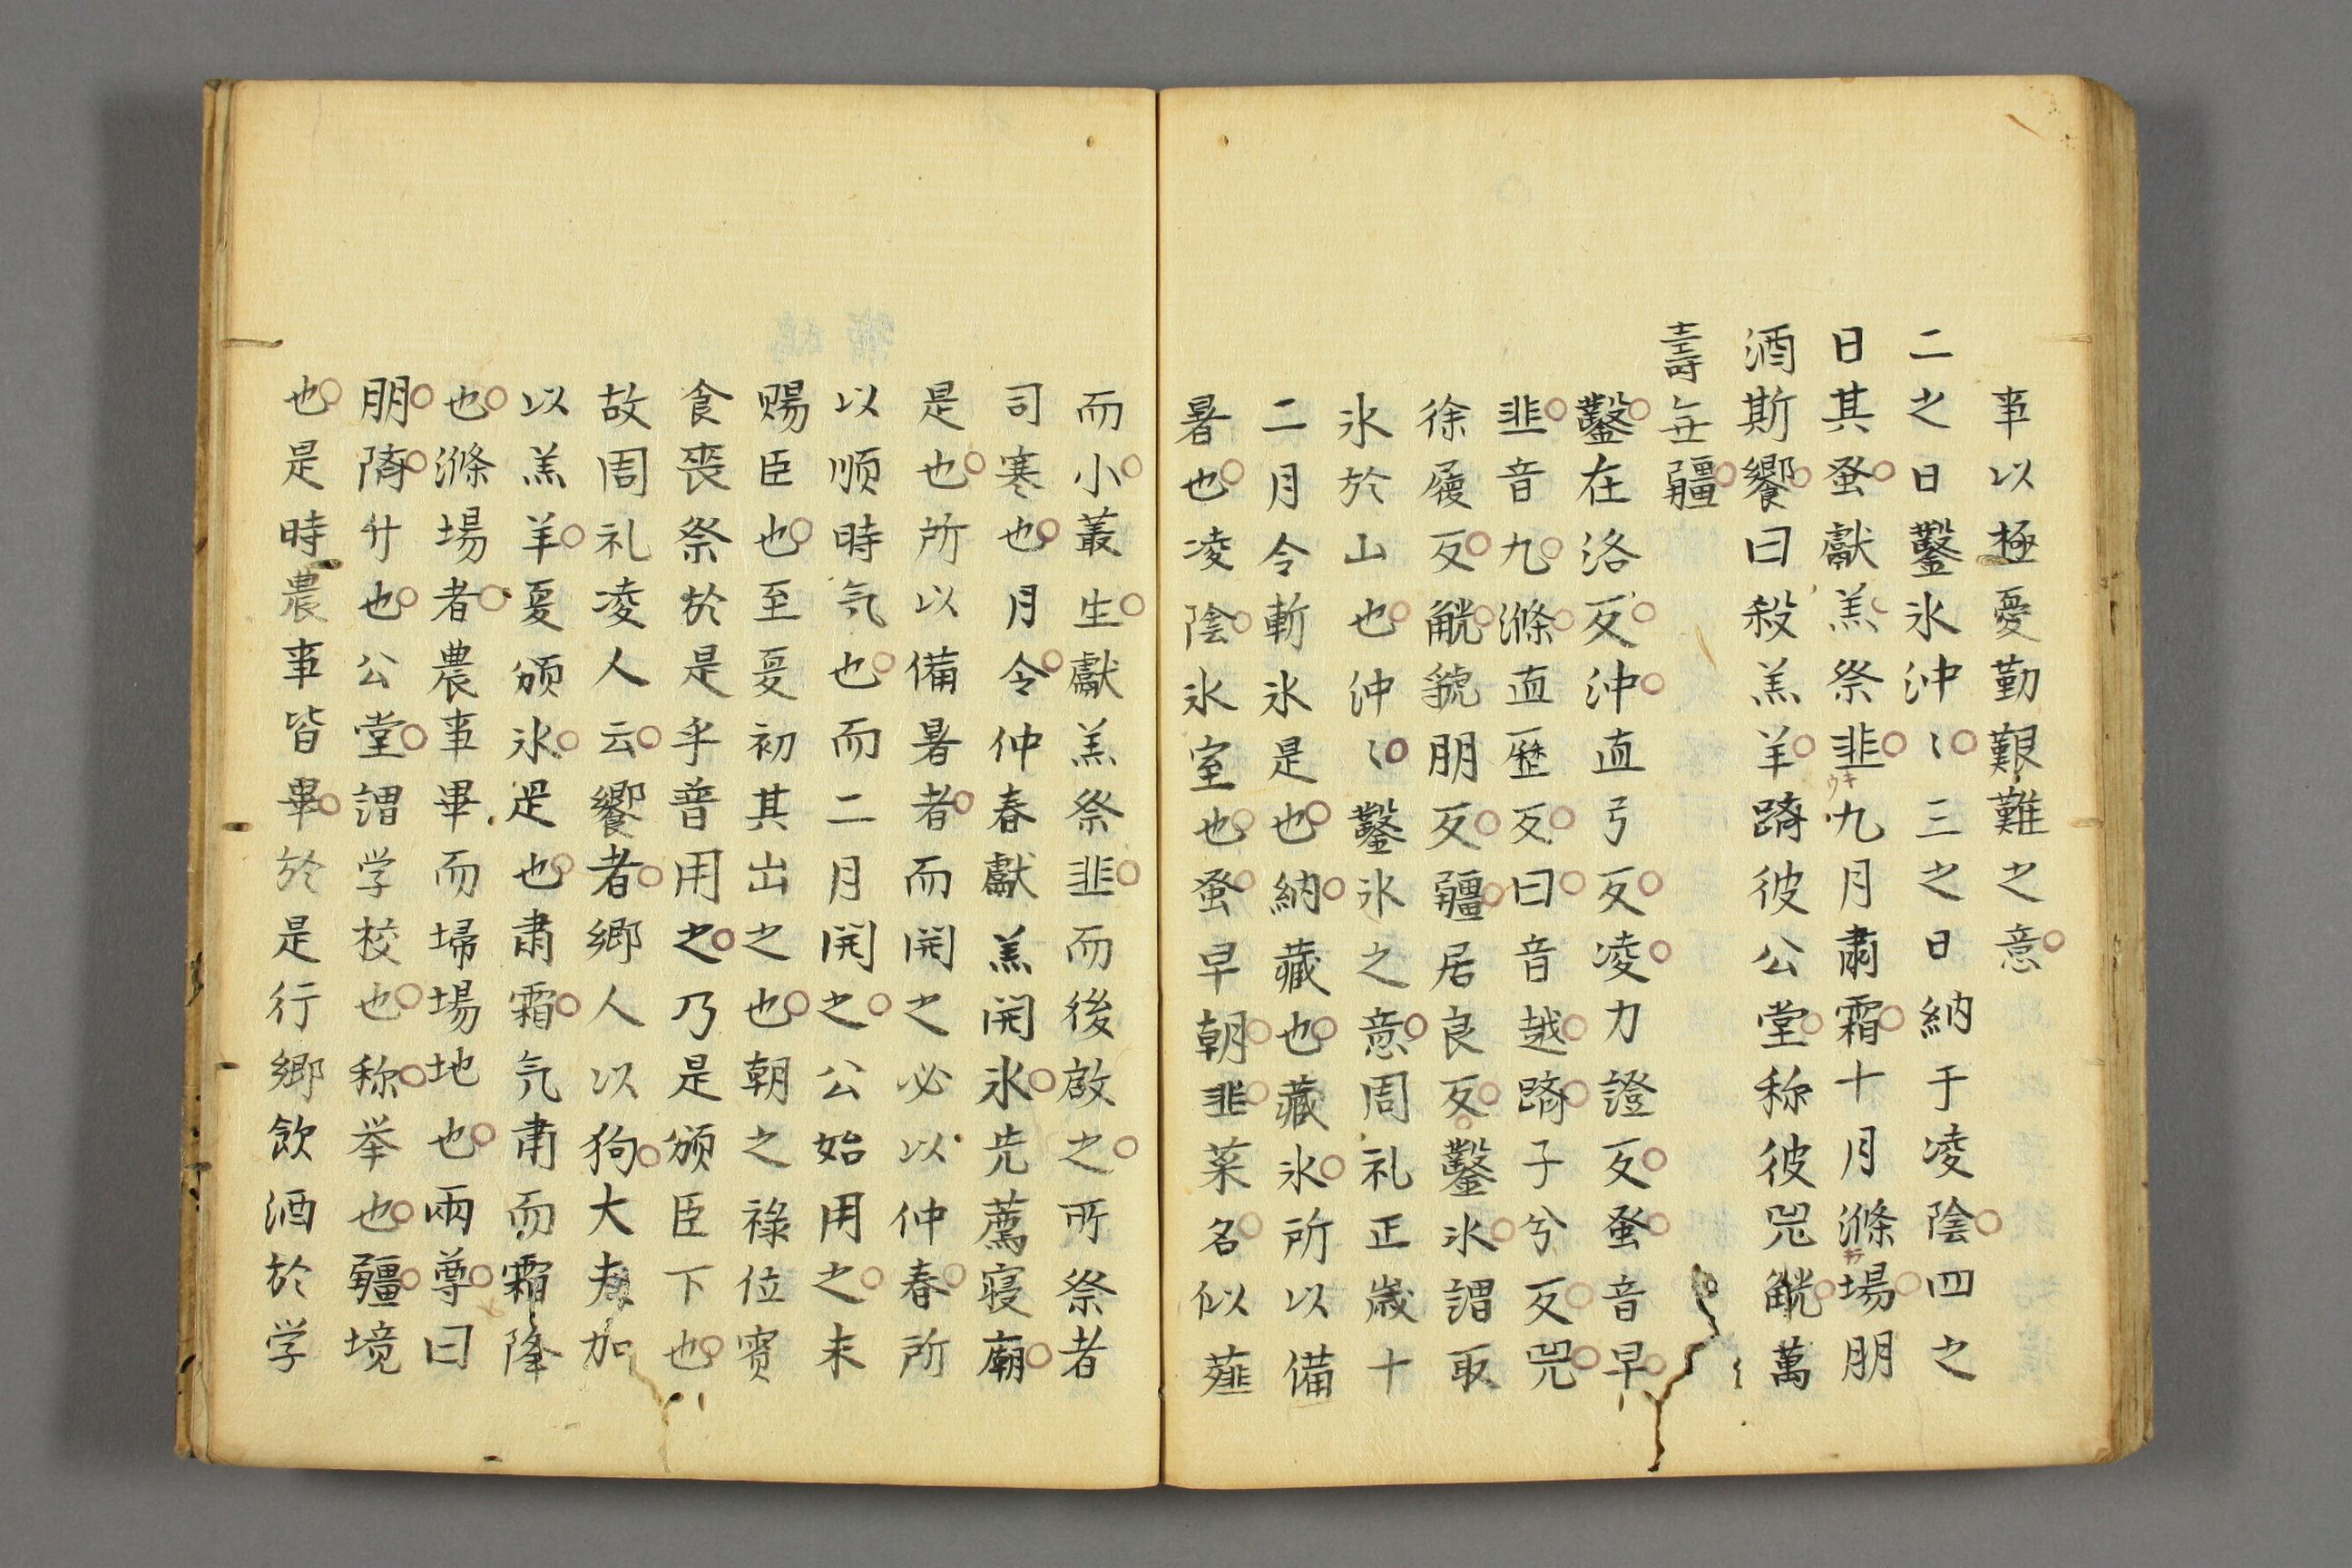 事以極憂勤艱難之意
二之日鑿氷沖〻三之日納于凌陰四之
日其蚤獻羔祭韭九月肅霜十月滌場朋
酒斯饗曰殺羔羊躋彼公堂称彼兕觥萬
壽無疆
鑿在洛反沖直弓反凌力證反蚤音早
韭音九滌直歷反曰音越躋子兮反兕
徐履反觥虢朋反疆居良反鑿氷謂取
氷於山也沖〻鑿氷之意周礼正歲十
二月令斬氷是也納藏也藏氷所以備
暑也凌陰氷室也蚤早朝韭菜名似薤
而小叢生獻羔祭韭而後啟之所祭者
司寒也月令仲春獻羔開氷先薦寝廟
是也所以備暑者而開之必以仲春所
以順時気也而二月開之公始用之未
賜臣也至夏初其出之也朝之祿位賓
食喪祭於是乎普用之乃是頒臣下也
故周礼凌人云饗者郷人以狗大夫加
以羔羊夏頒氷是也肅霜気肅而霜降
也滌場者農事畢而掃場地也兩尊曰
朋隮升也公堂謂学校也称举也疆境
也是時農事皆畢於是行郷飲酒於学
ウキ